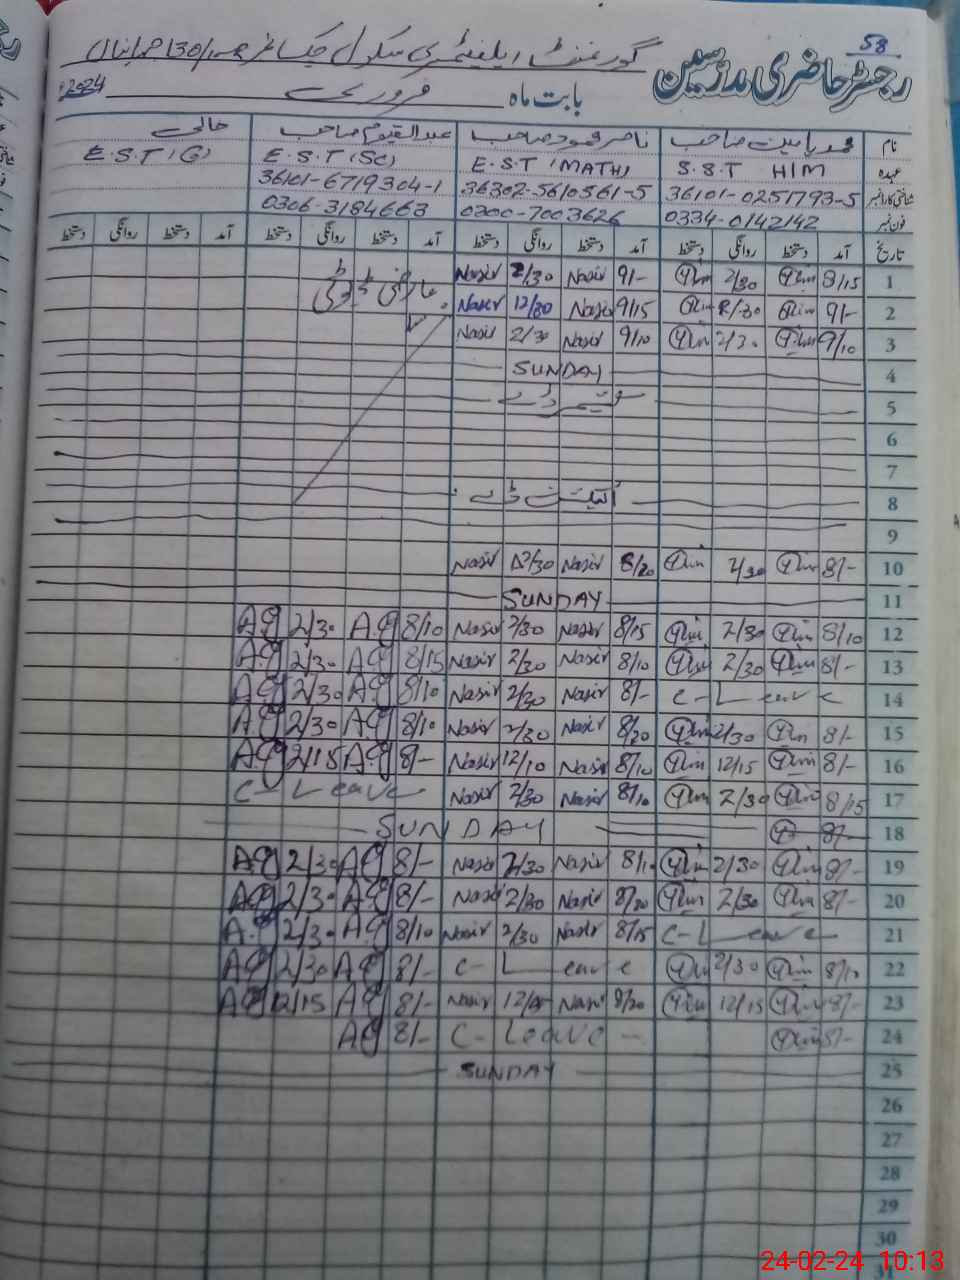 58
رجسٹر حاضری مدرسین گورنمنٹ ایلیمنٹری سکول چک نمبر 130/
بابت ماہ فروری 2024ء
نام محمد یامین صاحب ناصر محمود صاحب عبدالقیوم صاحب خالی
عہدہ S.S.T HIM E.S.T (MATH) E.S.T (SC) E.S.T (G)
شناختی کارڈ نمبر 36101-0251793-5 36302-5610561-5 36101-6719304-1
فون نمبر 0334-0142142 0300-7003626 0306-3184663
تاریخ آمد دستخط روانگی دستخط آمد دستخط روانگی دستخط آمد دستخط روانگی دستخط آمد دستخط روانگی دستخط
1 8/15 2/30 9/- Nasir 2/30 Nasir عارضی ڈیوٹی
2 9/- 9/15 Nasir 12/30 Nasir
3 9/10 2/30 9/10 Nasir 2/30 Nasir
4 SUNDAY
5 کشمیر ڈے
6
7
8 الیکشن ڈے
9
10 8/- 2/30 8/20 Nasir 12/30 Nasir
11 SUNDAY
12 8/10 2/30 8/15 Nasir 2/30 Nasir 8/10 A.Q 2/30 A.Q
13 8/- 2/30 8/10 Nasir 2/30 Nasir 8/15 A.Q 2/30 A.Q
14 C-Leave 8/- Nasir 2/30 Nasir 8/10 A.Q 2/30 A.Q
15 8/- 2/30 8/20 Nasir 2/30 Nasir 8/10 A.Q 2/30 A.Q
16 8/- 12/15 8/10 Nasir 12/10 Nasir 8/- A.Q 2/15 A.Q
17 8/15 2/30 8/10 Nasir 2/30 Nasir C-Leave
18 8/- SUNDAY
19 8/- 2/30 8/10 Nasir 2/30 Nasir 8/- A.Q 2/30 A.Q
20 8/- 2/30 8/20 Nasir 2/30 Nasir 8/- A.Q 2/30 A.Q
21 C-Leave 8/15 Nasir 2/30 Nasir 8/10 A.Q 2/30 A.Q
22 8/10 2/30 C-Leave 8/- A.Q 2/30 A.Q
23 8/- 12/15 8/20 Nasir Nasir 8/- A.Q 12/15 A.Q
24 8/- C-Leave 8/- A.Q
25 SUNDAY
26
27
28
29
30
31
24-02-24 10:13